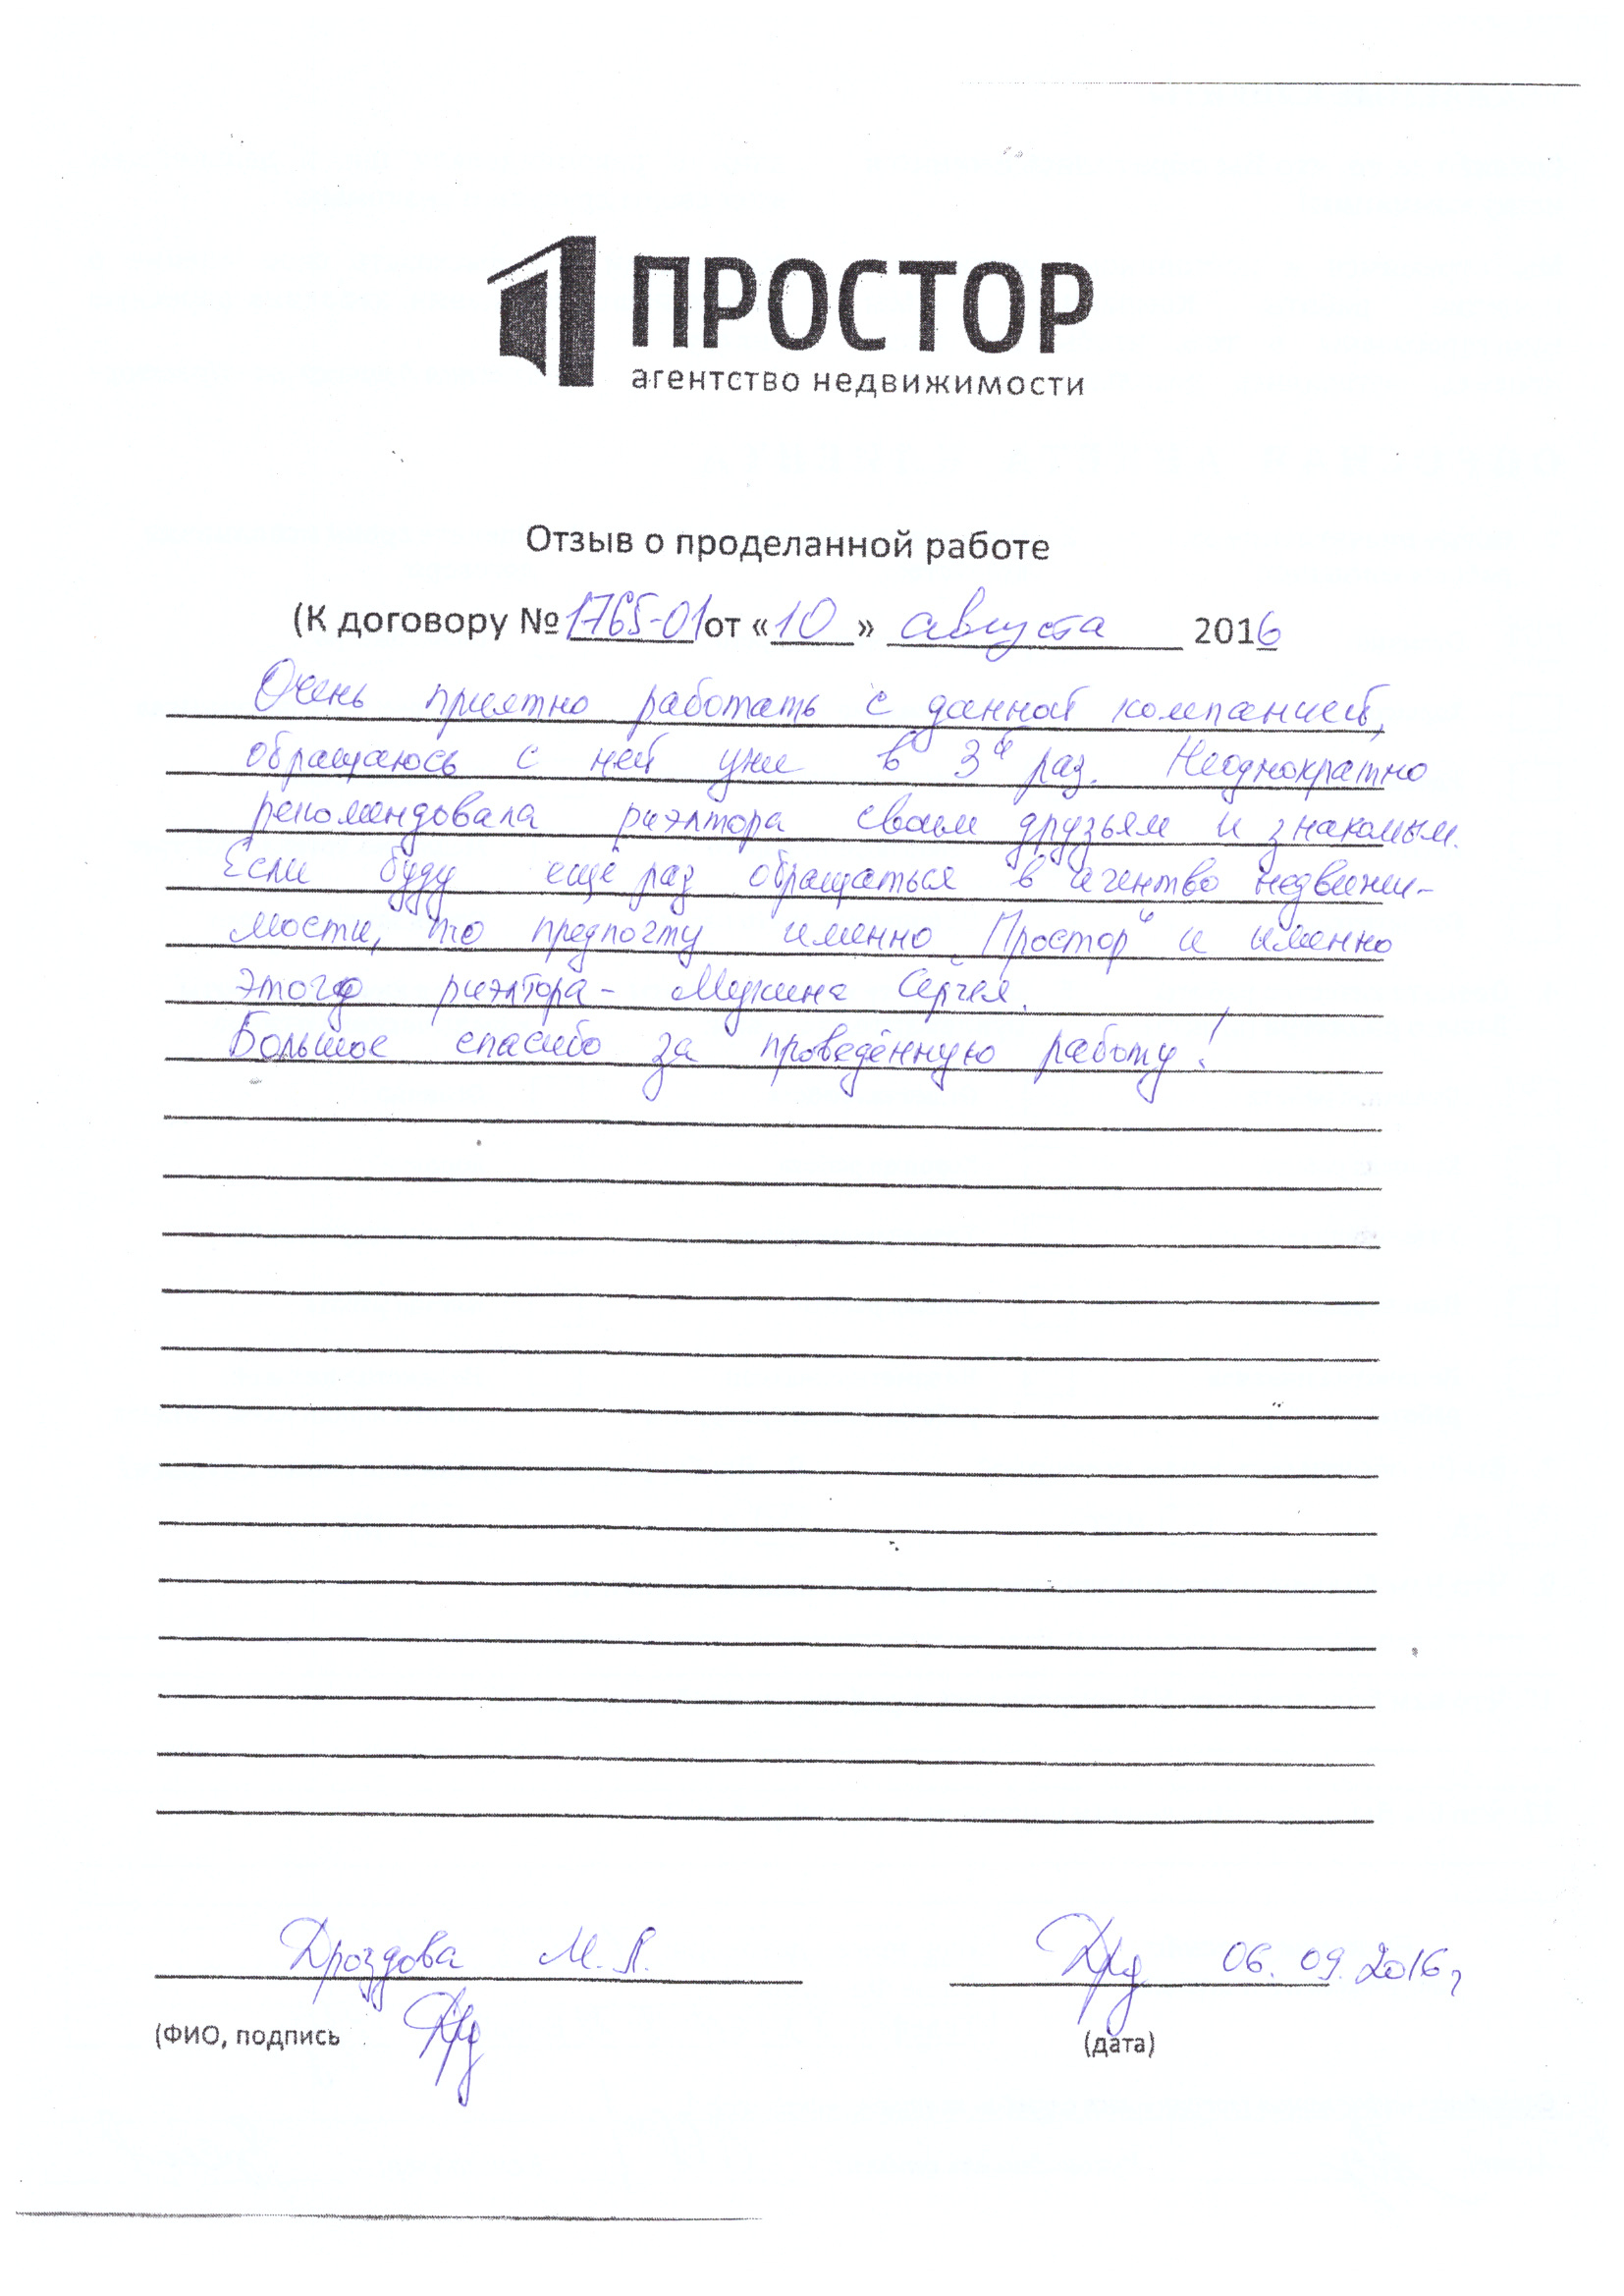 ПРОСТОР
агентство недвижимости
Отзыв о проделанной работе
(К договору № 1765-01 от «10» августа 2016
Очень приятно работать с данной компанией,
обращаюсь с ней уже в 3й раз. Неоднократно
рекомендовала риэлтора своим друзьям и знакомым.
Если буду ещё раз обращаться в агентво недвижи-
мости, то предпочту именно „Простор“ и именно
этого риэлтора - Сергея.
Большое спасибо за проведённую работу!
Дроздова М.Л. 06.09.2016г
(ФИО, подпись (дата)